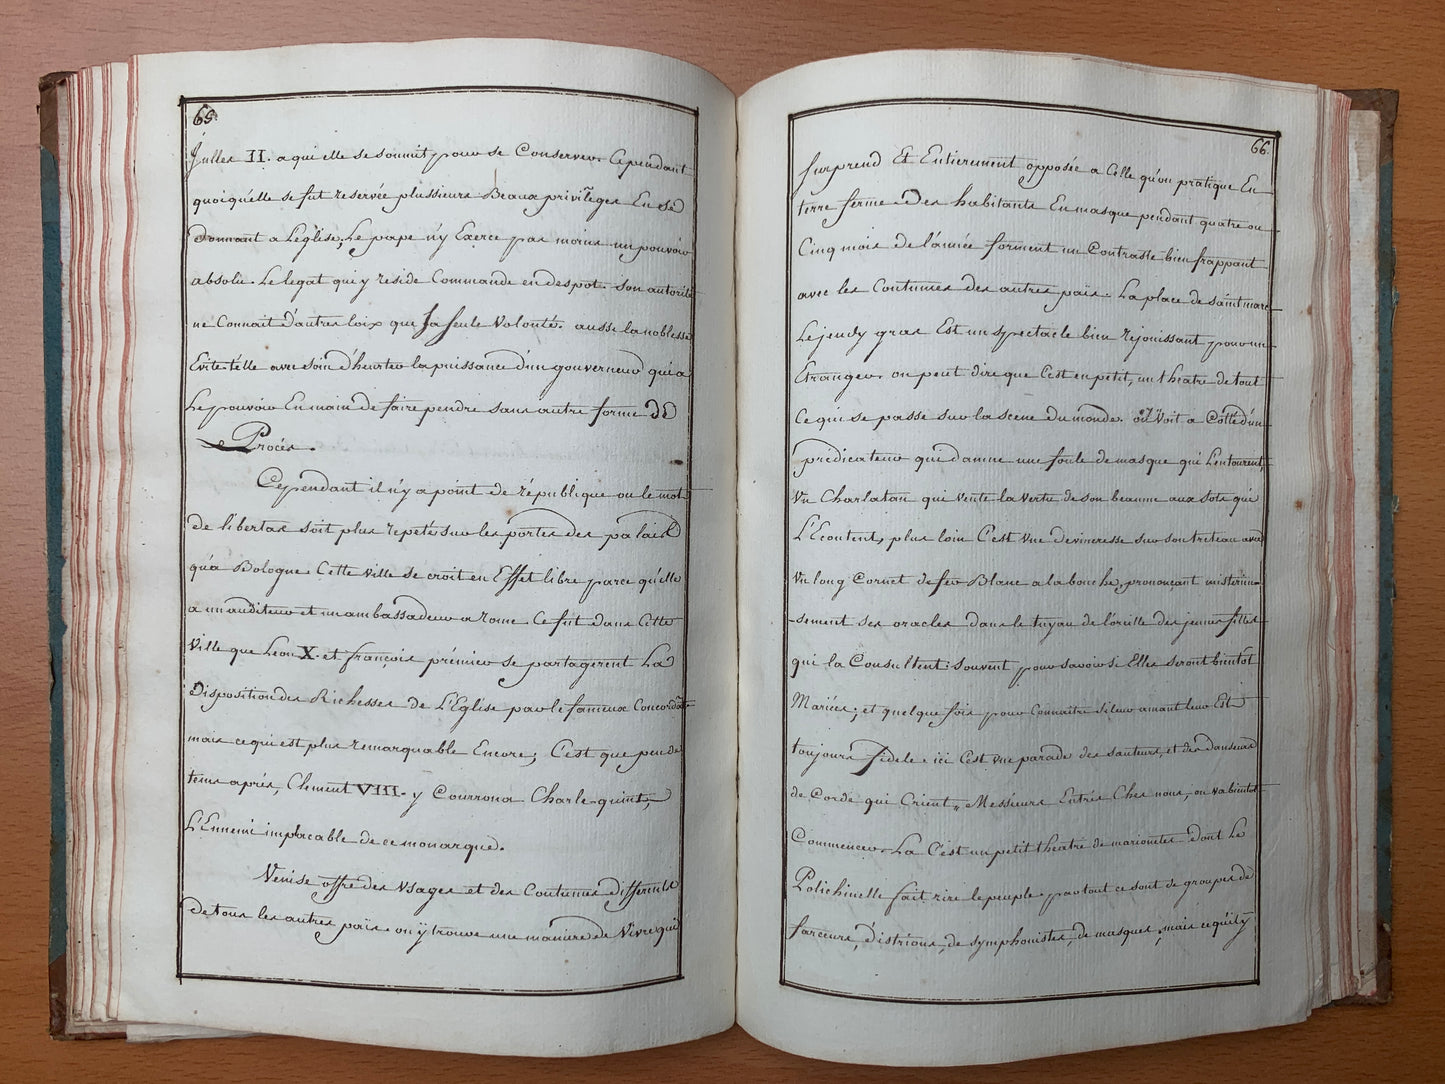 65.
Julles II. a qui elle se soumit pour se Conserver. Cependant
quoiqu'elle se fut reservée plussieurs Beaux privilèges En se
Donnant a Leglise, Le pape n'y Exerce pas moins un pouvoir
absolu. Le legat qui y reside Commande en despot. son autorité
ne Connait d'autres loix que Sa seule Volonté. aussi la noblesse
Evite-t'elle avec soin d'heurter la puissance d'un gouverneur qui a
Le pouvoir En main de faire pendre sans autre forme de
Procès.
Cependant il n'y a point de république ou le mot
de libertas soit plus repeté sur les portes des palais
qu'a Bologne. Cette Ville se croit en Effet libre parce qu'elle
a un auditeur et un ambassadeur a rome. Ce fut dans Cette
Ville que Leon X. et françois prémier se partagerent La
Disposition des Richesses de L'Eglise par le fameux Concordat
mais ce qui est plus remarquable Encore; C'est que peu de
tems après, Clement VIII. y Courrona Charle-quint,
L'Ennemi implacable de ce monarque.
Venise offre des Usages et des Coutumes differents
de tous les autres païs. on y trouve une maniere de Vivre qui
66.
surprend Et Entierement opposée a Celle qu'on pratique En
terre ferme. Des habitants En masque pendant quatre ou
Cinq mois de l'année forment un Contraste bien frappant
avec les Coutumes des autres païs. La place de saint marc
Le jeudy gras Est un spectacle bien rejouissant pour un
Etranger. on peut dire que C'est en petit, un théatre de tout
Ce qui se passe sur la scene du monde. où l'on Voit a Cotté d'un
prédicateur qui damne une foule de masque qui L'entourent,
Un Charlatan qui Vente la Vertu de son beaume aux sots qui
L'Ecoutent, plus loin C'est une devineresse sur son treteau avec
Un long Cornet de fer Blanc a la bouche, prononçant misterieu-
-sement ses oracles dans le tuyau de l'oreille des jeunes filles
qui la Consultent souvent pour savoir si Elles seront bientot
Mariées; et quelque fois pour Connaitre si leur amant leur Est
toujours fidele. ici C'est une parade des sauteurs, et des danseurs
de Corde qui Crient „ Messieurs Entrés Ches nous, on va bientot
Commencer. La C'est un petit theatre de marionetes dont Le
Polichinelle fait rire le peuple. partout ce sont de groupes de
farceurs, d'istrions, de symphonistes, de masques, mais ce qu'il y